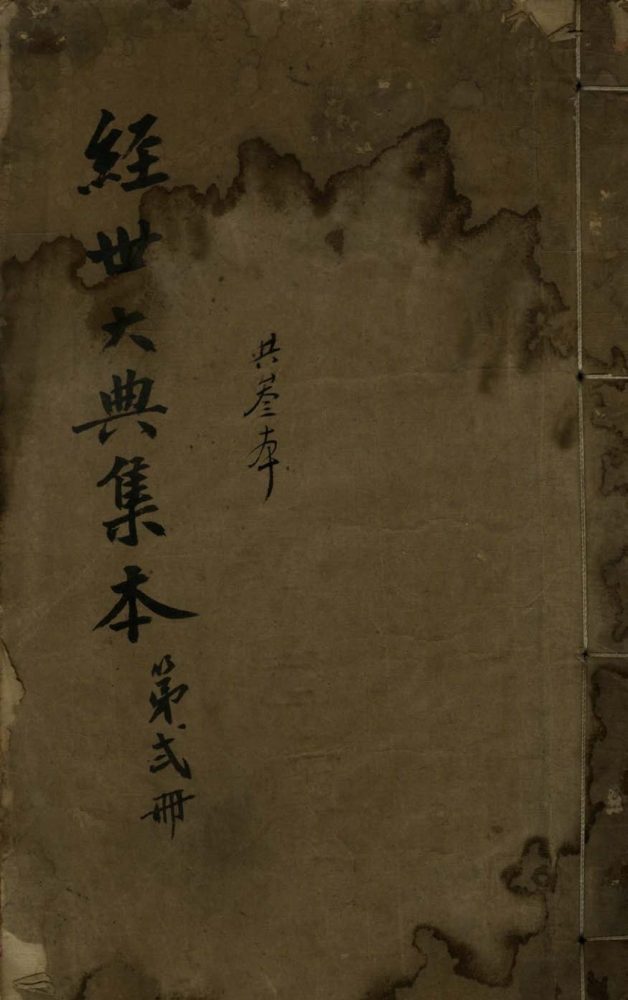 共叁本
經世大典集本
第弍冊